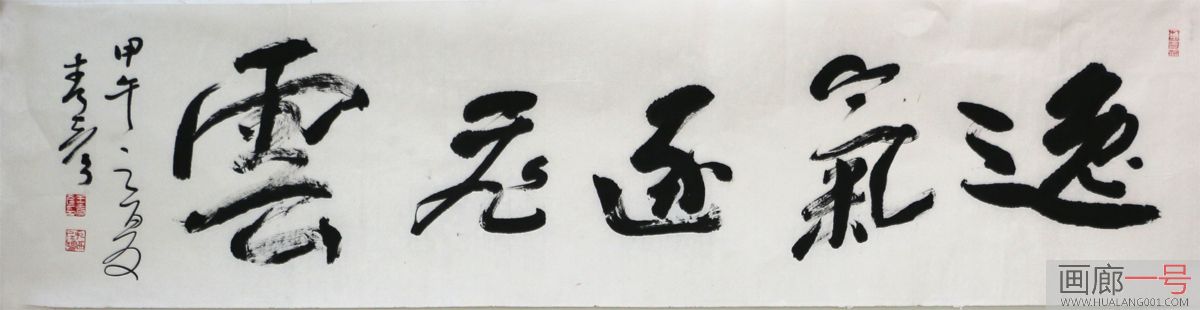 逸氣逐飛雲
甲午之夏
画廊一号
WWW.HUALANG001.COM